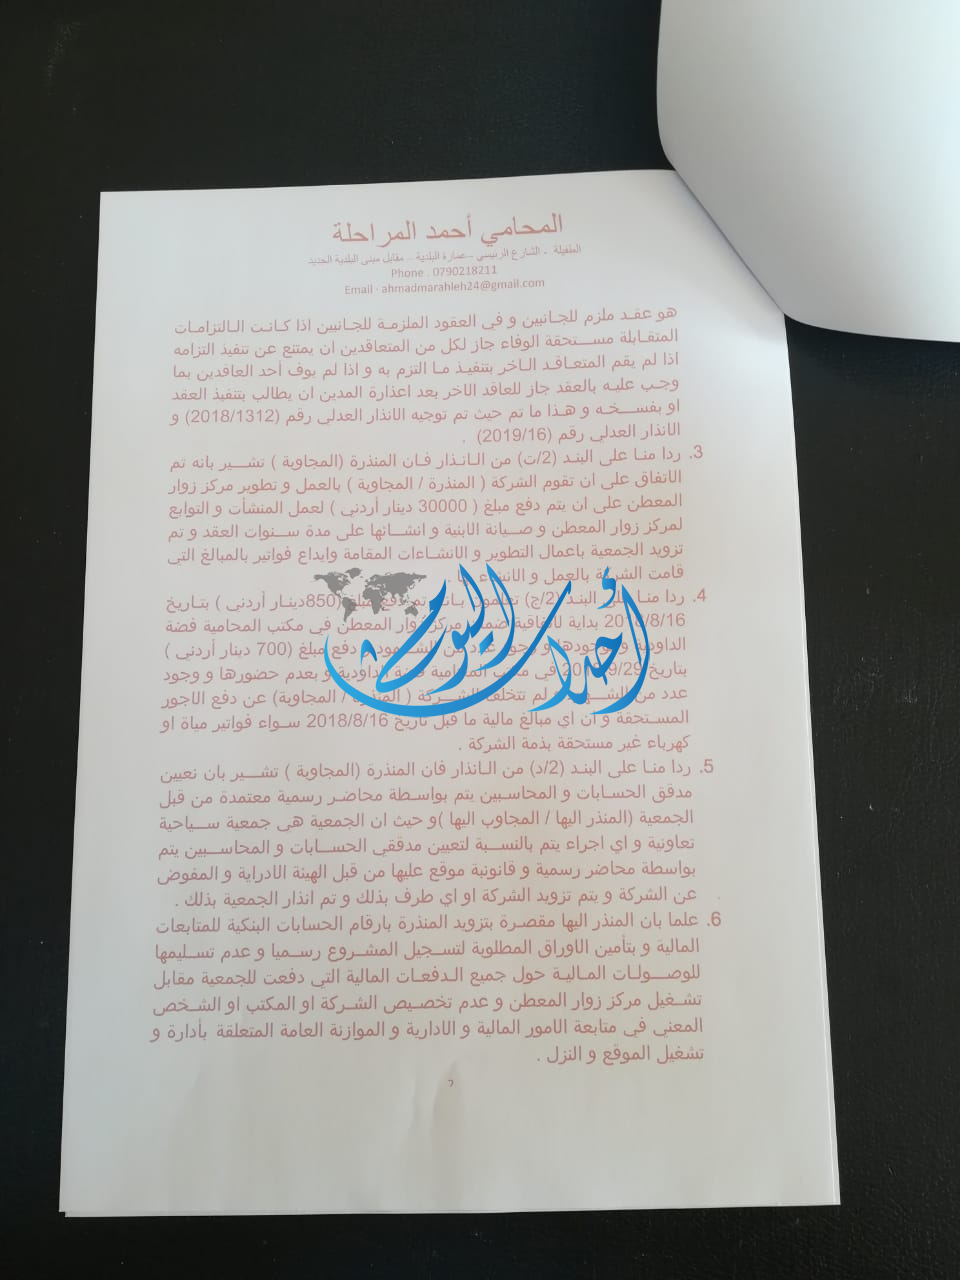 المحامي أحمد المراحلة
الطفيلة - الشارع الرئيسي - عمارة البلدية - مقابل مبنى البلدية الجديد
Phone . 0790218211
Email · ahmadmarahleh24@gmail.com
هو عقد ملزم للجانبين و في العقود الملزمة للجانبين اذا كانت الالتزامات
المتقابلة مستحقة الوفاء جاز لكل من المتعاقدين ان يمتنع عن تنفيذ التزامه
اذا لم يقم المتعاقد الآخر بتنفيذ ما التزم به و اذا لم يوف أحد العاقدين بما
وجب عليه بالعقد جاز للعاقد الآخر بعد اعذارة المدين ان يطالب بتنفيذ العقد
او بفسخه و هذا ما تم حيث تم توجيه الانذار العدلي رقم (2018/1312) و
الانذار العدلي رقم (2019/16) .
3. ردا منا على البند (2/ت) من الانذار فان المنذرة (المجاوبة ) تشير بانه تم
الاتفاق على ان تقوم الشركة ( المنذرة / المجاوبة ) بالعمل و تطوير مركز زوار
المعطن على ان يتم دفع مبلغ ( 30000 دينار أردني ) لعمل المنشأت و التوابع
لمركز زوار المعطن و صيانة الابنية و انشائها على مدة سنوات العقد و تم
تزويد الجمعية باعمال التطوير و الانشاءات المقامة وايداع فواتير بالمبالغ التي
قامت الشركة بالعمل و الانشاء بها .
4. ردا منا على البند (2/ج) تعلمون بانه تم دفع مبلغ (850دينار أردني ) بتاريخ
2018/8/16 بداية لاتفاقية ضمان مركز زوار المعطن في مكتب المحامية فضة
الداودية و بوجودها و وجود عدد من الشهود و دفع مبلغ (700 دينار أردني )
بتاريخ في مكتب المحامية فضة الداودية و بعدم حضورها و وجود
عدد من الشهود و لم تتخلف الشركة ( المنذرة / المجاوبة) عن دفع الاجور
المستحقة و ان اي مبالغ مالية ما قبل تاريخ 2018/8/16 سواء فواتير مياة او
كهرباء غير مستحقة بذمة الشركة .
5. ردا منا على البند (2/د) من الانذار فان المنذرة (المجاوبة ) تشير بان تعيين
مدقق الحسابات و المحاسبين يتم بواسطة محاضر رسمية معتمدة من قبل
الجمعية (المنذر اليها / المجاوب اليها )و حيث ان الجمعية هي جمعية سياحية
تعاونية و اي اجراء يتم بالنسبة لتعيين مدققي الحسابات و المحاسبين يتم
بواسطة محاضر رسمية و قانونية موقع عليها من قبل الهيئة الادراية و المفوض
عن الشركة و يتم تزويد الشركة او اي طرف بذلك و تم انذار الجمعية بذلك .
6. علما بان المنذر اليها مقصرة بتزويد المنذرة بارقام الحسابات البنكية للمتابعات
المالية و بتأمين الاوراق المطلوبة لتسجيل المشروع رسميا و عدم تسليمها
للوصولات المالية حول جميع الدفعات المالية التي دفعت للجمعية مقابل
تشغيل مركز زوار المعطن و عدم تخصيص الشركة او المكتب او الشخص
المعني في متابعة الامور المالية و الادارية و الموازنة العامة المتعلقة بأدارة و
تشغيل الموقع و النزل .
أحداث اليوم